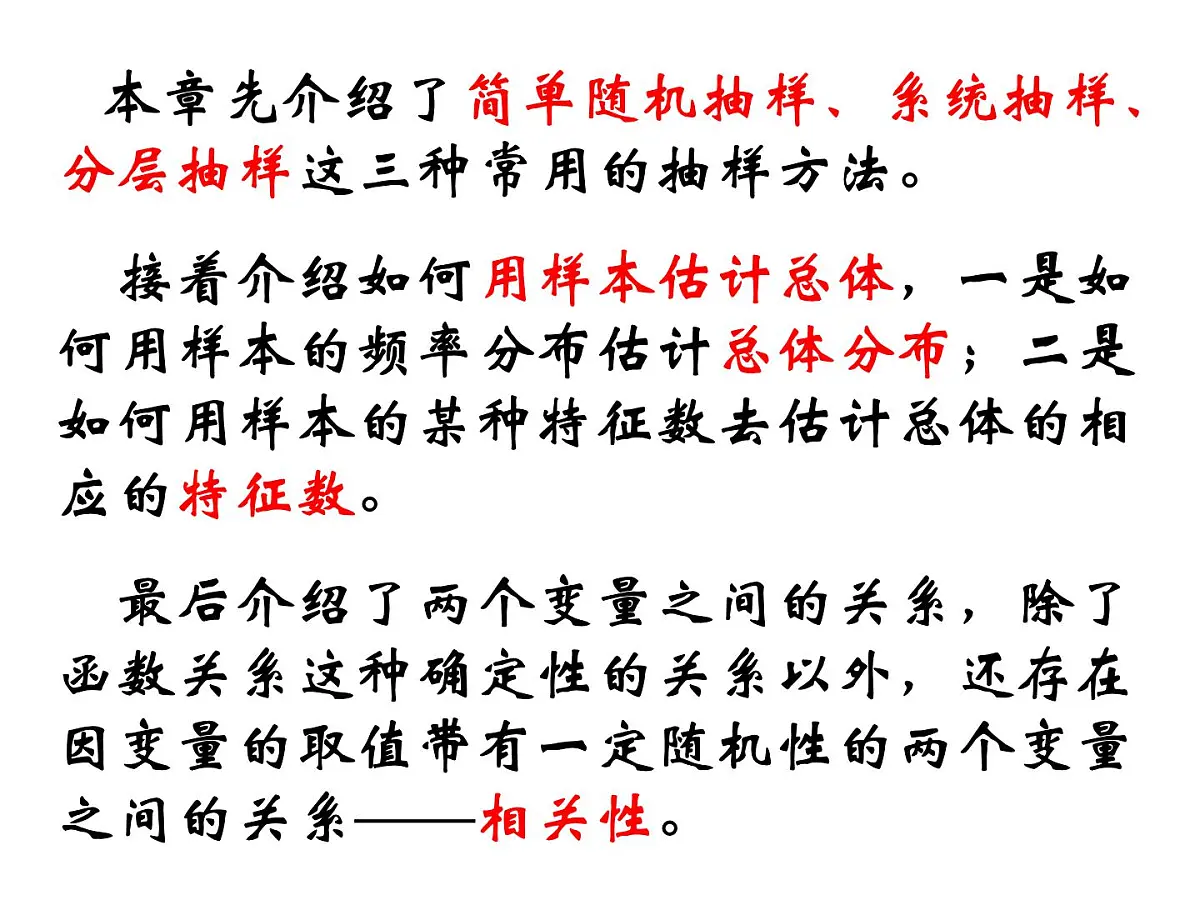 本章先介绍了简单随机抽样、系统抽样、
分层抽样这三种常用的抽样方法。
接着介绍如何用样本估计总体，一是如
何用样本的频率分布估计总体分布；二是
如何用样本的某种特征数去估计总体的相
应的特征数。
最后介绍了两个变量之间的关系，除了
函数关系这种确定性的关系以外，还存在
因变量的取值带有一定随机性的两个变量
之间的关系——相关性。